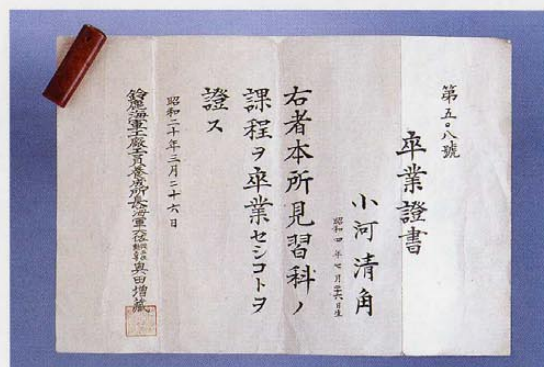 第五〇八號
卒業證書
小河清角
昭和四年七月廿六日生
右者本所見習科ノ
課程ヲ卒業セシコトヲ
證ス
昭和二十年三月二十六日
鈴鹿海軍工廠工員養成所長海軍 奥田増藏